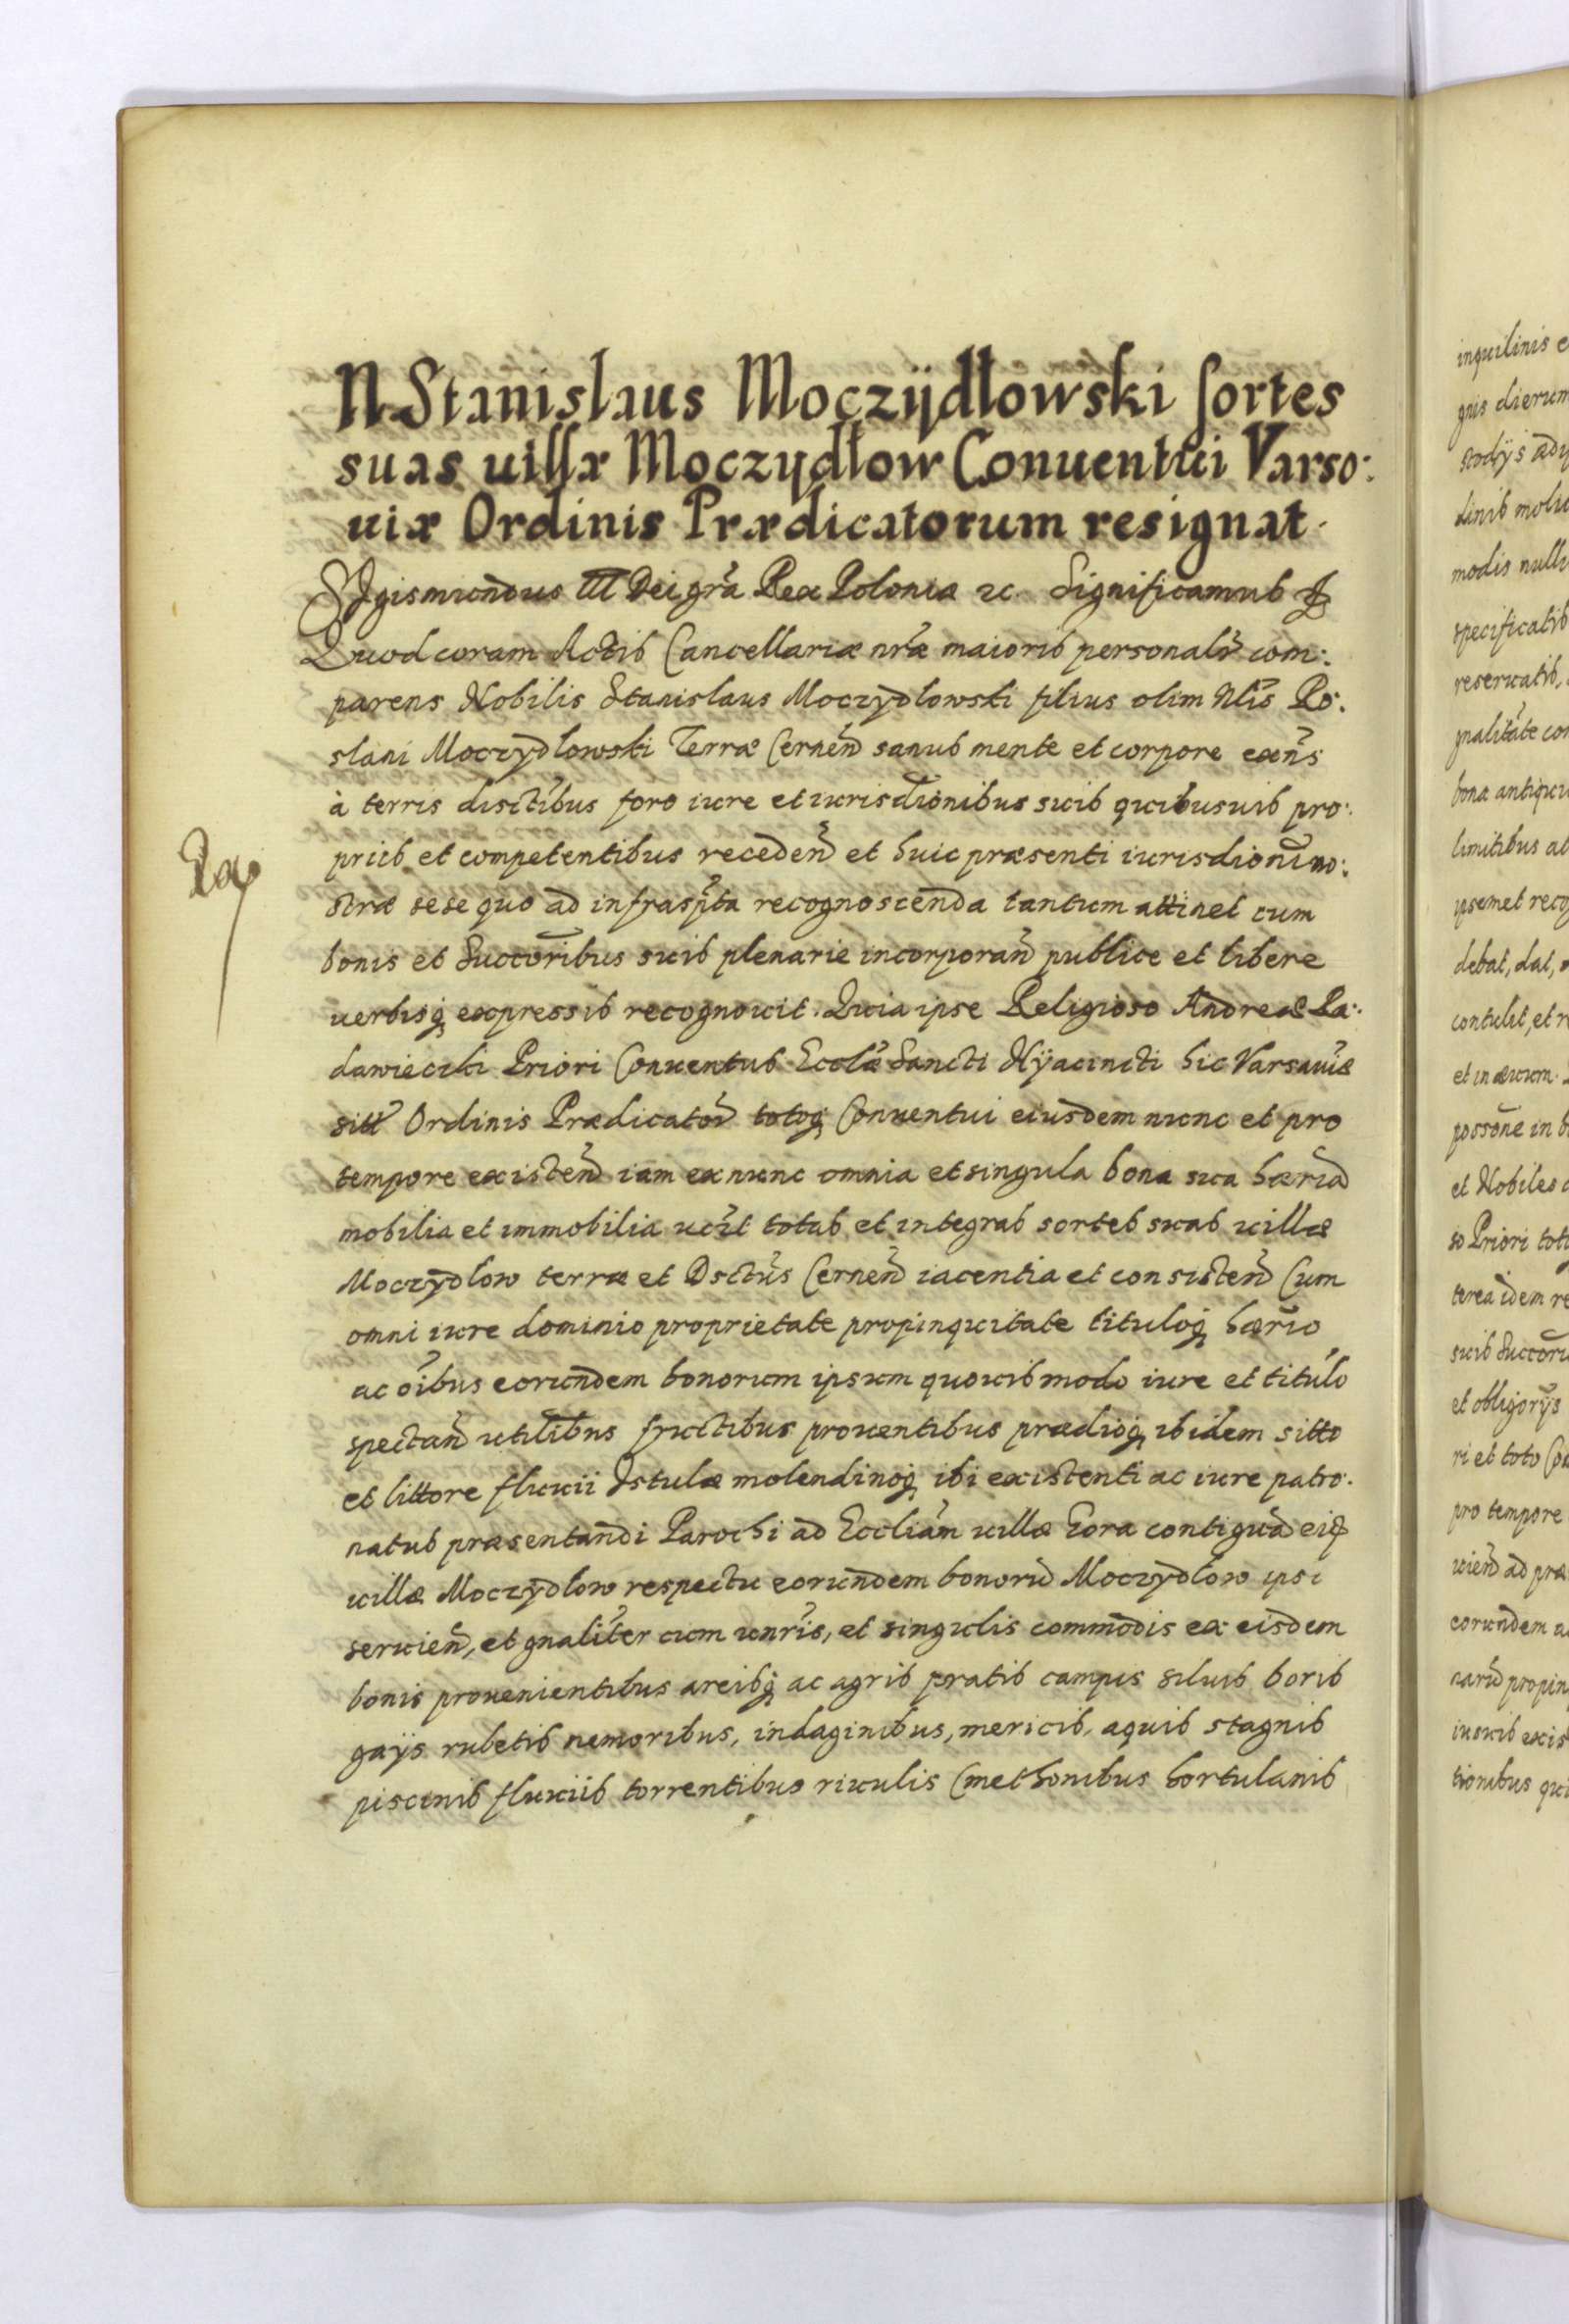 N. Stanislaus Moczÿdłowski sortes
suas uillæ Moczydłow Conuentui Varso:
uiæ Ordinis Prædicatorum resignat.
Sigismundus III Dei gr̃a Rex Poloniæ &c. Significamus
Quod coram Actis Cancellariæ nr̃æ maioris personalr̃ com:
parens Nobilis Stanislaus Moczydlowski filius olim Nlis Ro:
slani Moczydlowski Terræ Cernen̄ sanus mente et corpore exn̄s
à terris disctibus foro iure et iurisdionibus suis quibusuis pro:
prijs et competentibus receden̄ et huic præsenti iurisdioni no:
stræ sese quo ad infrasp̄ta recognoscenda tantum attinet cum
bonis et Succoribus suis plenarie incorporan̄ publice et libere
uerbisq; expressis recognouit. Quia ipse Religioso Andreæ Ra:
dawiecki Priori Conuentus Ecclæ Sancti Hÿacincti hic Varsauiæ
sitt Ordinis Prædicator̃ totoq; Conuentui eiusdem nunc et pro
tempore existen̄ iam ex nunc omnia et singula bona sua hæria
mobilia et immobilia uczt totas et integras sortes suas uillæ
Moczydlow terræ et Dsctus Cernen̄ iacentia et consisten̄ Cum
omni iure dominio proprietate propinquitate tituloq; hærio
ac oibus eorundem bonorum ipsum quouis modo iure et titulo
spectan̄ utilibus fructibus prouentibus prædioq; ibidem sitto
et littore fluuii Istulæ molendinoq; ibi existenti ac iure patro:
natus præsentandi Parochi ad Eccliam uillæ Gora contiguã
uillæ Moczydlow respectu eorundem bonorũ Moczydlow ipsi
seruien̄, et gnaliter cum unris, et singulis commodis ex eisdem
bonis prouenientibus areisq; ac agris pratis campis siluis boris
gaÿs rubetis nemoribus, indaginibus, mericis, aquis stagnis
piscinis fluuiis torrentibus riuulis Cmethonibus hortulanis
inquilinis
dierum
modis
specificatis
reseruatis,
gnalitate
bona
limitibus
ipsemet
debat, dat,
contulit, et
et in æuum.
possone in
et Nobiles
so Priori
terea idem
suis
et
ri et toto
pro tempore
ad
eorundem
propin
tionibus